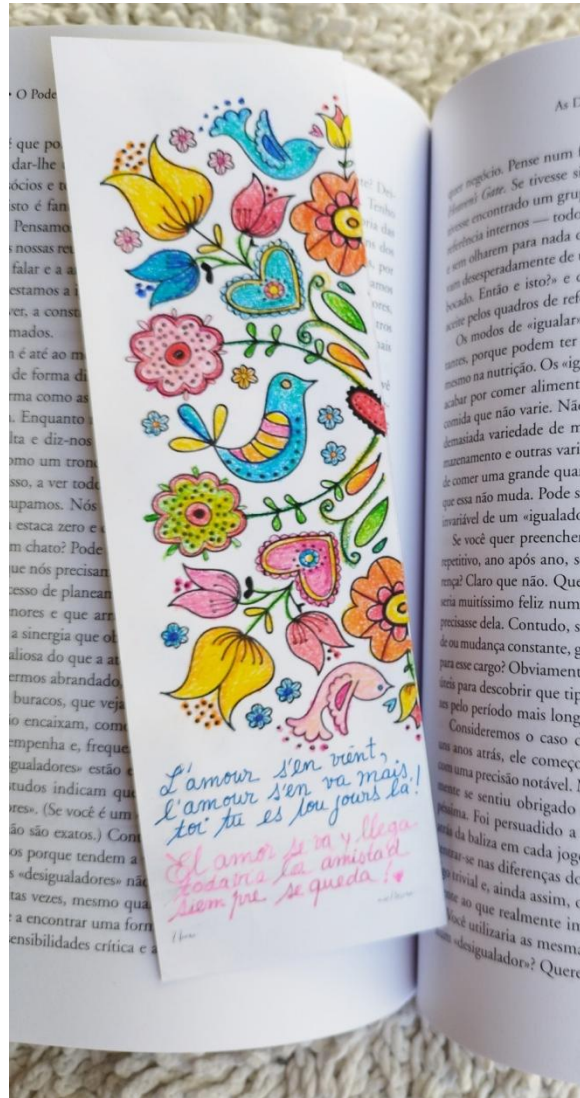 • O Pode
é que po
dar-lhe
ócios e t
sto é fan
Pensamo
s nossas reu
falar e a a
estamos a i
ver, a const
mados.
n é até ao m
de forma di
rma como as
. Enquanto
lta e diz-nos
omo um tron
sso, a ver tod
upamos. Nós
estaca zero e
m chato? Pode
ue nós precisan
cesso de planean
nores e que arr
a sinergia que ob
aliosa do que a at
ermos abrandado,
buracos, que veja
o encaixam, com
empenha e, freque
gualadores» estão
tudos indicam qu
ores». (Se você é um
ão são exatos.) Cont
os porque tendem a
s «desigualadores» nã
tas vezes, mesmo qua
e a encontrar uma forn
ensibilidades crítica e a
L'amour s'en vient,
l'amour s'en va mais
toi tu es toujours là!
El amor se va y llega.
todavia la amistad
siempre se queda!
As D
quer negócio. Pense num
(Heaven's) Gate. Se tivesse si
tivesse encontrado um gru
referência internos — todo
e sem olharem para nada
am desesperadamente de
bocado. Então e isto?» e
aceite pelos quadros de ref
Os modos de «igualar»
rantes, porque podem ter
mesmo na nutrição. Os «ig
acabar por comer aliment
comida que não varie. Não
demasiada variedade de m
mazenamento e outras vari
de comer uma grande qua
que essa não muda. Pode s
invariável de um «igualado
Se você quer preencher
repetitivo, ano após ano, s
rença? Claro que não. Que
seria muitíssimo feliz num
precisasse dela. Contudo, s
de ou mudança constante, g
para esse cargo? Obviament
úteis para descobrir que tip
um pelo período mais long
Consideremos o caso
uns anos atrás, ele começo
com uma precisão notável. M
mente se sentiu obrigado
péssima. Foi persuadido a
atrás da baliza em cada jog
trar-se nas diferenças do
ga trivial e, ainda assim, o
te ao que realmente im
Você utilizaria as mesma
um «desigualador»? Quere